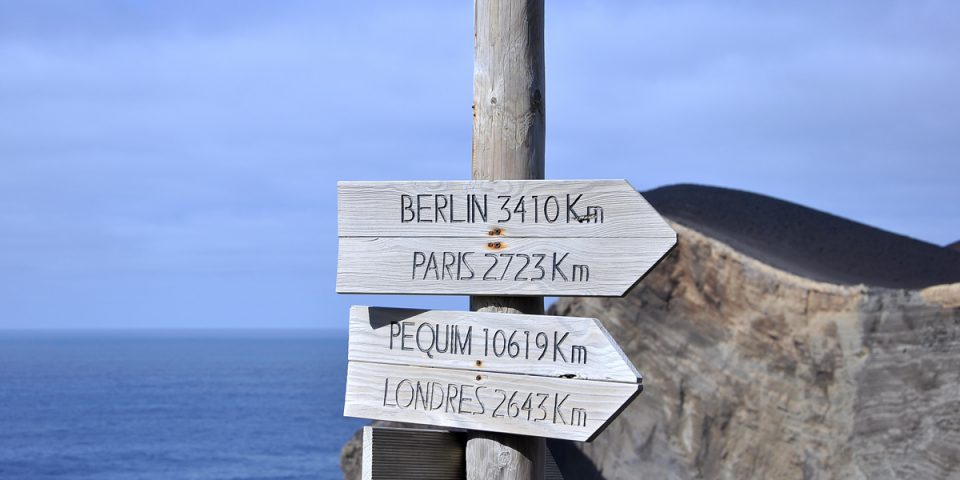 BERLIN 3410Km
PARIS 2723Km
PEQUIM 10619Km
LONDRES 2643Km